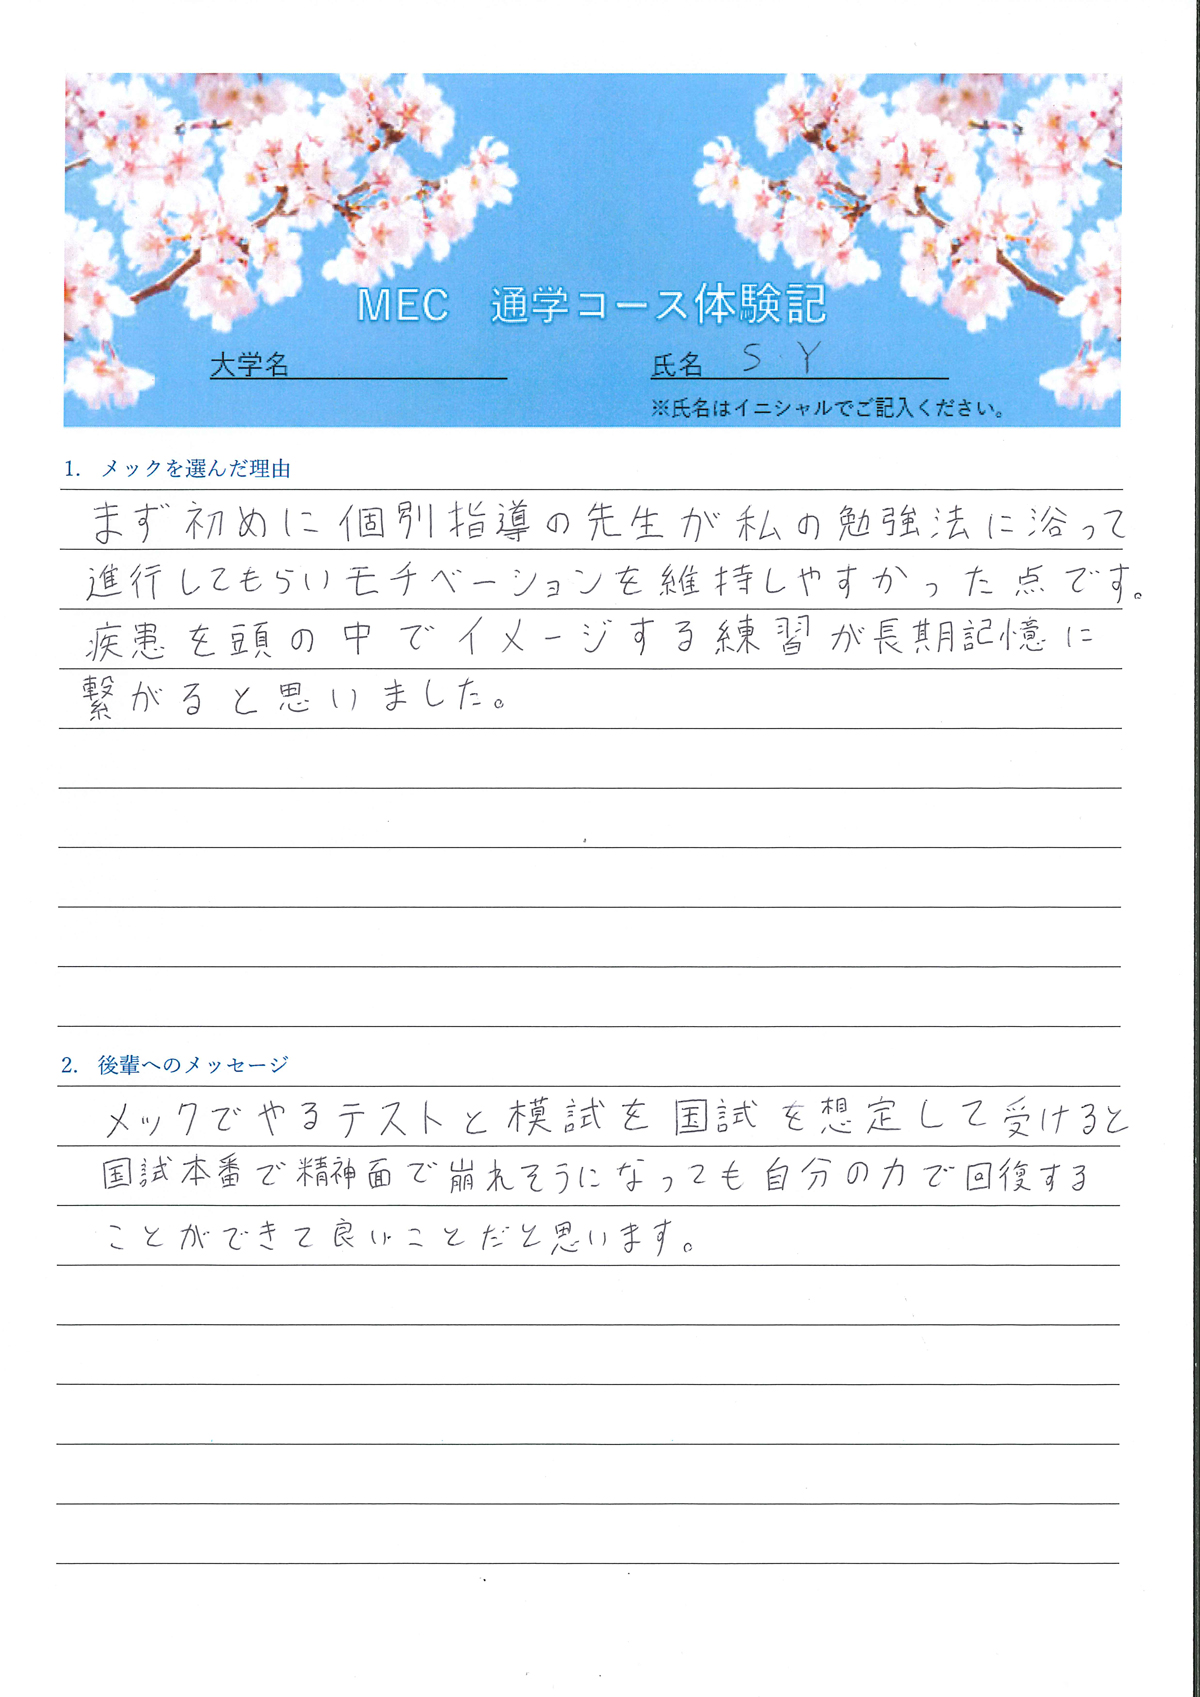 MEC 通学コース体験記
大学名
氏名 S.Y
※氏名はイニシャルでご記入ください。
1. メックを選んだ理由
まず初めに個別指導の先生が私の勉強法に浴って
進行してもらいモチベーションを維持しやすかった点です。
疾患を頭の中でイメージする練習が長期記憶に
繋がると思いました。
2. 後輩へのメッセージ
メックでやるテストと模試を国試を想定して受けると
国試本番で精神面で崩れそうになっても自分の力で回復する
ことができて良いことだと思います。